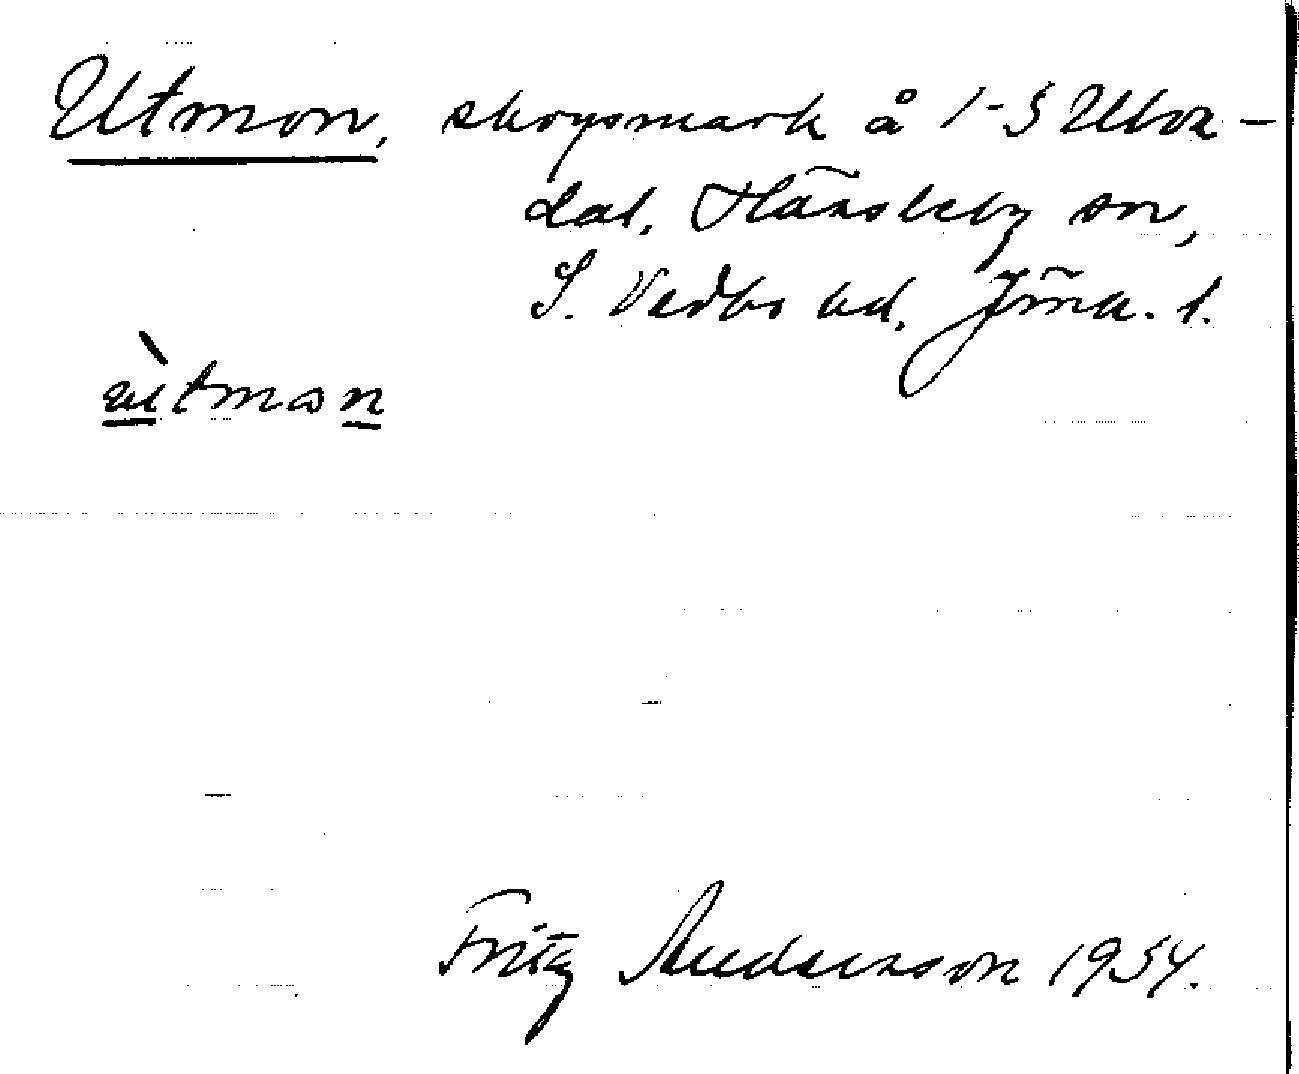 Utmon, skogsmark å 1-5 Ulva-
dal, Flisby sn,
S. Vedbo hd, Jönk. l.
ùtmon
Fritz Andersson 1954.